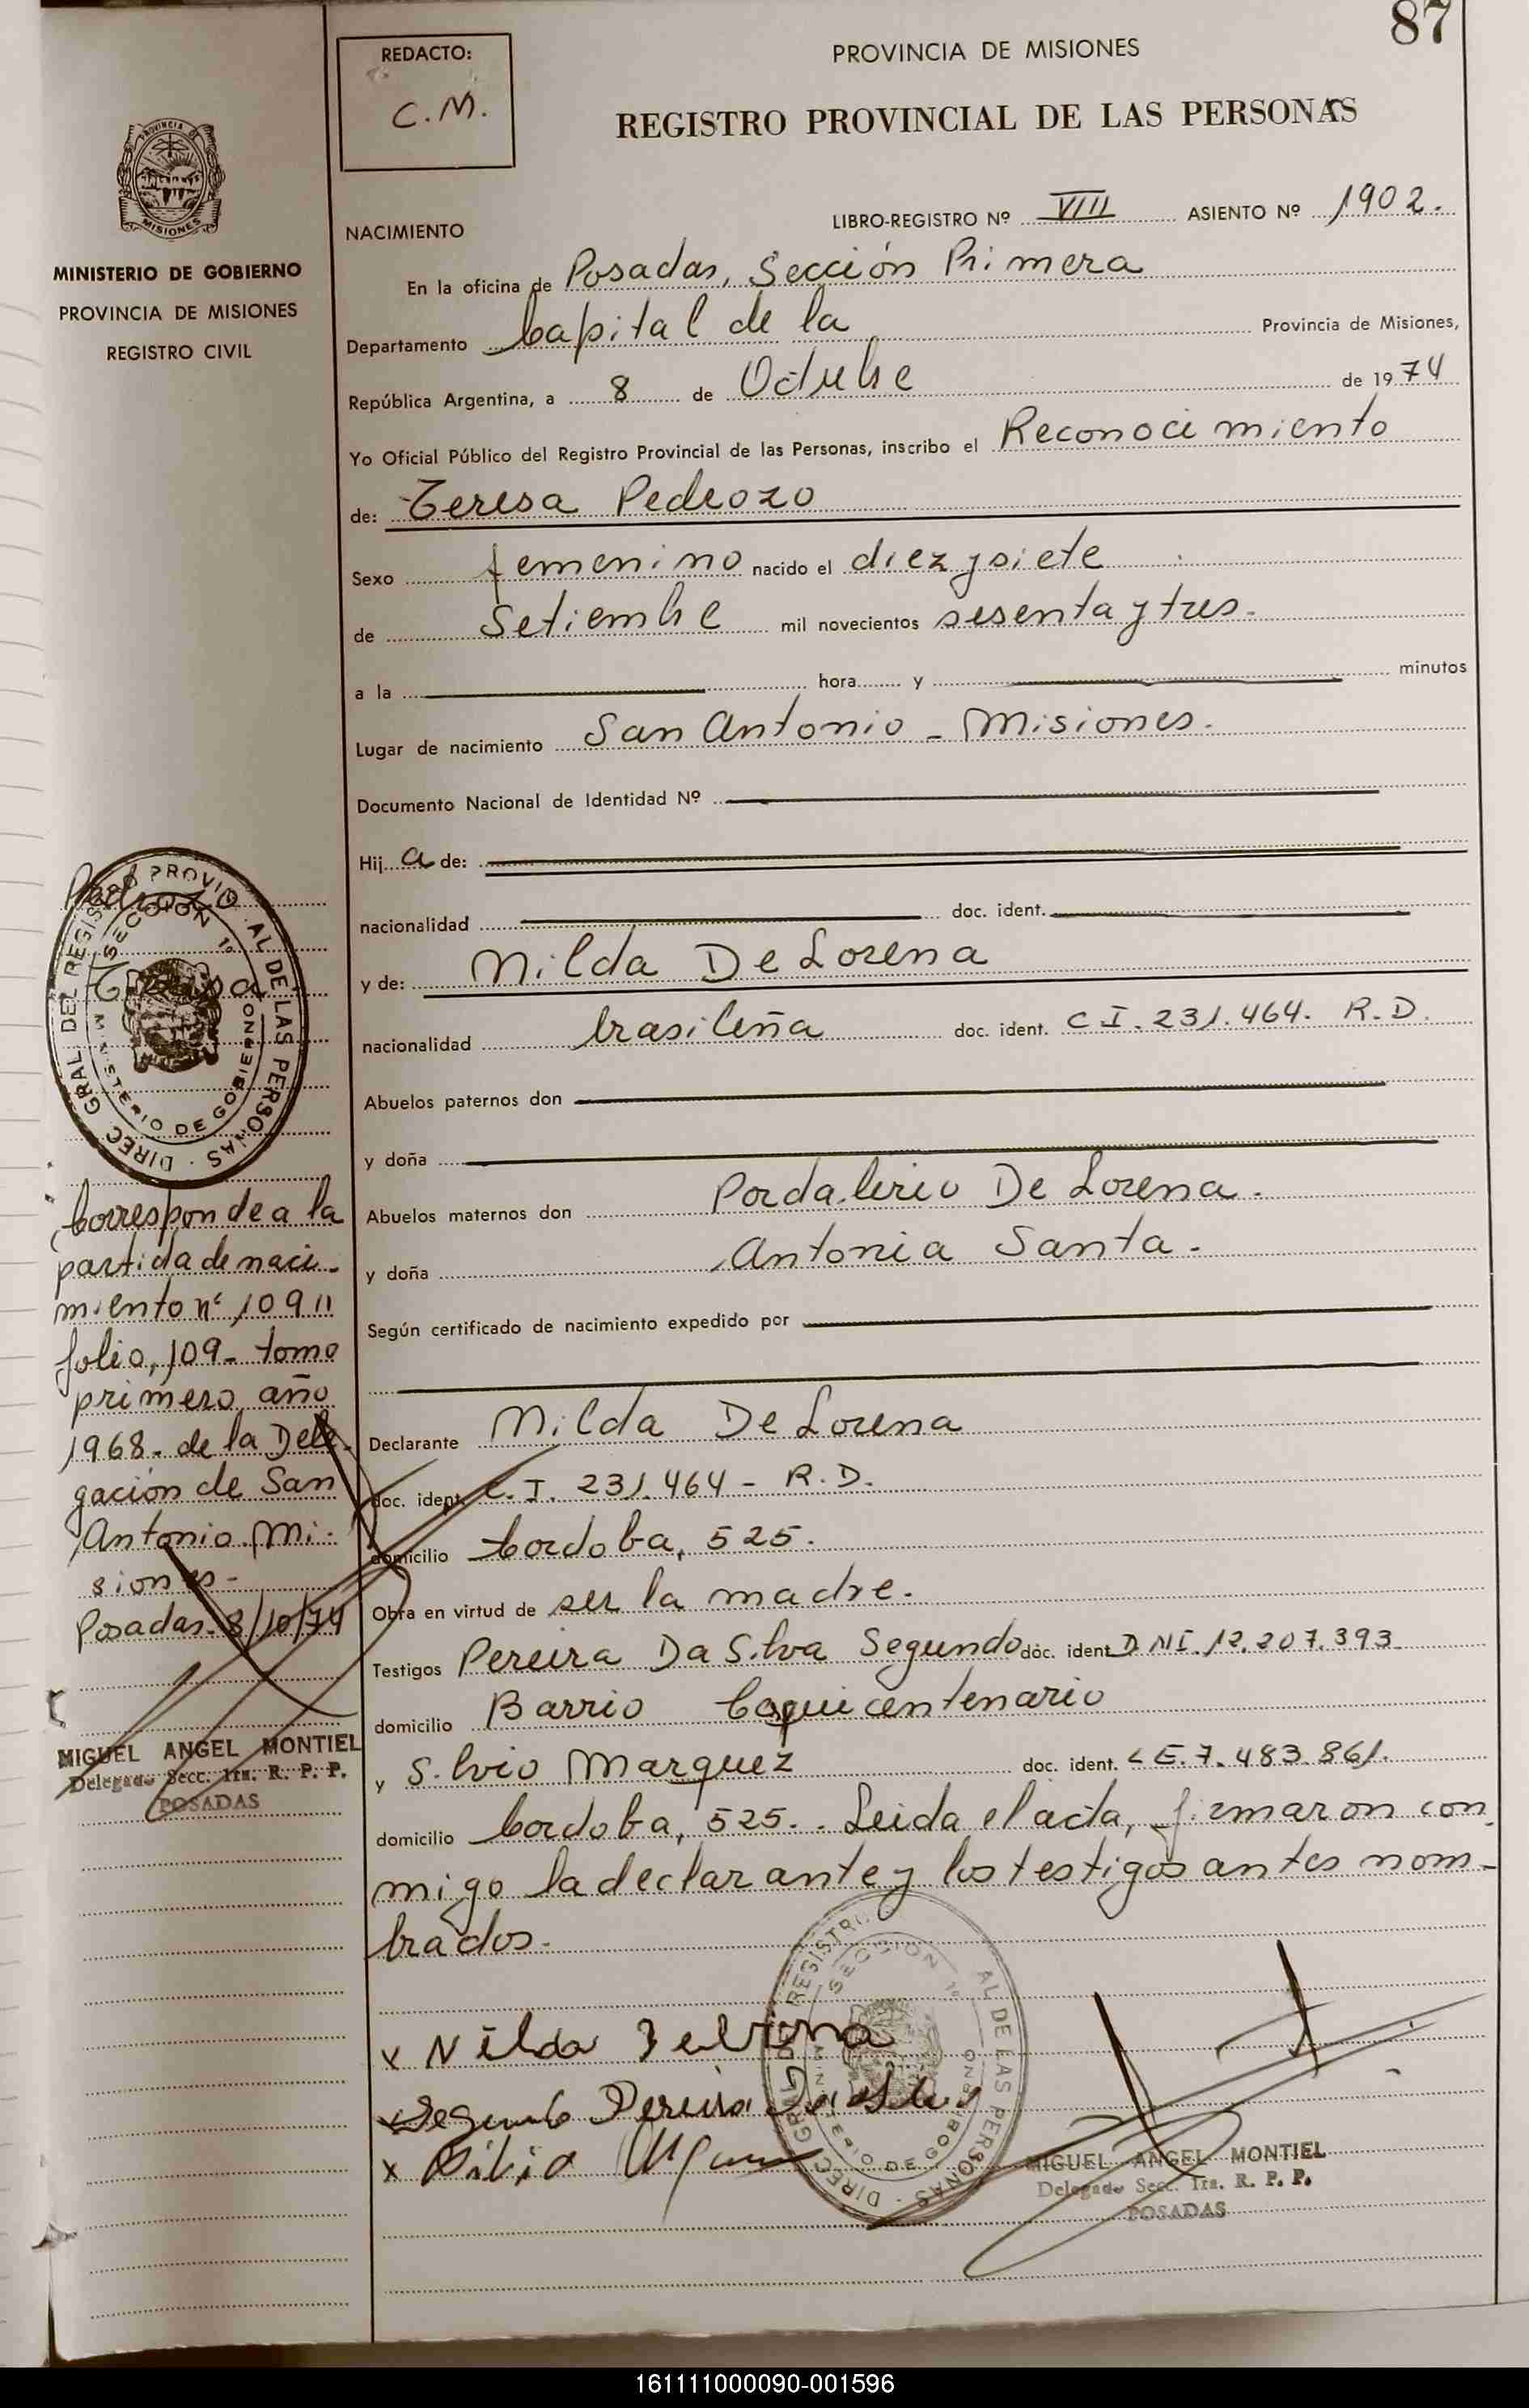 87
REDACTO:
C.M.
PROVINCIA DE MISIONES
REGISTRO PROVINCIAL DE LAS PERSONAS
PROVINCIA
MISIONES
MINISTERIO DE GOBIERNO
PROVINCIA DE MISIONES
REGISTRO CIVIL
NACIMIENTO
LIBRO-REGISTRO Nº VIII ASIENTO Nº 1902.
En la oficina de Posadas, Sección Primera
Departamento Capital de la Provincia de Misiones,
República Argentina, a 8 de Octubre de 1974
Yo Oficial Público del Registro Provincial de las Personas, inscribo el Reconocimiento
de: Teresa Pedrozo
Sexo femenino nacido el diez y siete
de Setiembre mil novecientos sesenta y tres.
a la hora y minutos
Lugar de nacimiento San Antonio - Misiones.
Documento Nacional de Identidad Nº
Hij a de:
nacionalidad doc. ident.
y de: Nilda De Lorena
nacionalidad brasileña doc. ident. C I. 231.464. R.D.
Abuelos paternos don
y doña
Abuelos maternos don Pordalirio De Lorena.
y doña Antonia Santa.
Según certificado de nacimiento expedido por
Declarante Nilda De Lorena
doc. ident. C.I. 231.464 - R.D.
domicilio Cordoba, 525.
Obra en virtud de ser la madre.
Testigos Pereira Da Silva Segundo doc. ident. D NI. 12.207.393
domicilio Barrio
y Silvio Marquez doc. ident. L E. 7.483.861.
domicilio Cordoba, 525.. Leida el acta, firmaron con
migo la declarante y los testigos antes nom-
brados.
Pedrozo
Teresa
DIREC. GRAL. DEL REGISTRO PROVINCIAL DE LAS PERSONAS
SECCION 1º
MINISTERIO DE GOBIERNO
Corresponde a la
partida de naci-
miento nº 109 11
folio, 109- tomo
primero, año
1968- de la Dele-
gación de San
Antonio. Mi-
siones-
Posadas. 8/10/74
MIGUEL ANGEL MONTIEL
Delegado Secc. 1ra. R. P. P.
POSADAS
x Nilda
x Segundo Pereira Da Silva
x Silvio
DIREC. GRAL. DEL REGISTRO PROVINCIAL DE LAS PERSONAS
SECCION 1º
MINISTERIO DE GOBIERNO
MIGUEL ANGEL MONTIEL
Delegado Secc. 1ra. R. P. P.
POSADAS
161111000090-001596